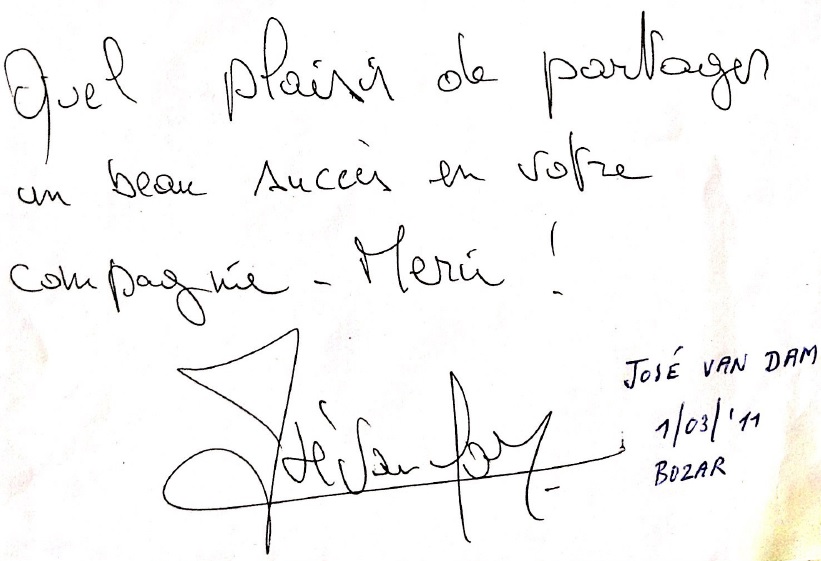 Quel plaisir de partager
un beau succès en votre
compagnie - Merci !
José Van Dam
JOSÉ VAN DAM
1/03/'11
BOZAR